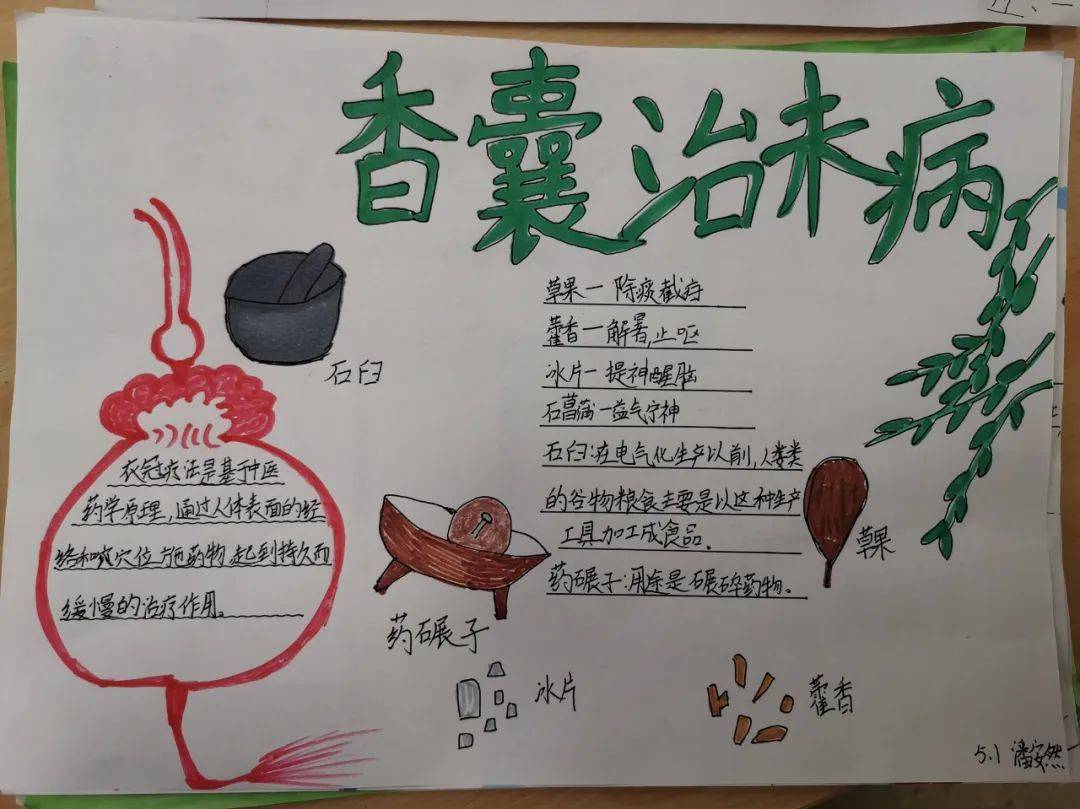 香囊治未病
草果一除痰截疟
藿香一解暑,止呕
冰片一提神醒脑
石菖蒲一益气宁神
石臼:在电气化生产以前,人类类
的谷物粮食主要是以这种生产
工具加工成食品、
药碾子:用途是碾碎药物。
石臼
衣冠疗法是基于中医
药学原理,通过人体表面的经
络和 穴位 施药物,起到持久而
缓慢的治疗作用。
药碾子
草果
冰片
藿香
5.1 潘安然